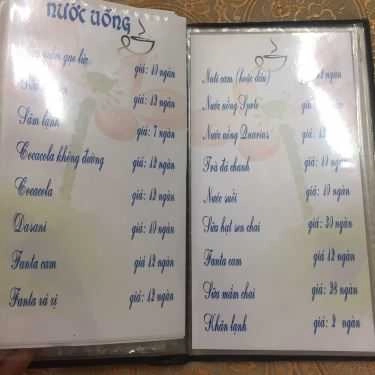 NƯỚC UỐNG
giá: 11 ngàn
giá: 12 ngàn
Sâm lạnh giá: 7 ngàn
Cocacola không đường giá: 12 ngàn
Cocacola giá 12 ngàn
Dasani giá: 10 ngàn
Fanta cam giá 12 ngàn
Fanta xá xị giá: 12 ngàn
Nutri cam (hoặc dâu) ngàn
Nước uống Sprite ngàn
Nước uống Quarius ngàn
Trà đá chanh giá: 10 ngàn
Nước suối giá: 10 ngàn
Sữa hạt sen chai giá: 30 ngàn
Fanta cam giá 12 ngàn
Sữa mầm chai giá: 28 ngàn
Khăn lạnh giá: 2 ngàn